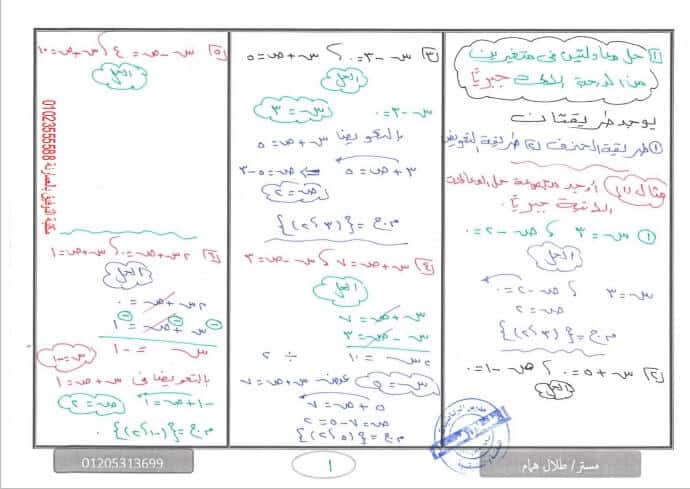 [١] حل معادلتين فى متغيرين
من الدرجة الأولى جبريًا
يوجد طريقتان
① طريقة الحذف ② طريقة التعويض
مثال (١) أوجد مجموعة حل المعادلات
الآتية جبريًا
① س = ٣ ، ص - ٢ = ٠
الحل
س = ٣ ، ص - ٢ = ٠
ص = ٢
م.ح = {(٣،٢)}
[٢] س + ٥ = ٠ ، ص - ١ = ٠
الحل
[٣] س - ٣ = ٠ ، س + ص = ٥
الحل
س - ٣ = ٠
س = ٣
بالتعويض س + ص = ٥
٣ + ص = ٥ ⇐ ص = ٥ - ٣
ص = ٢
م.ح = {(٣،٢)}
[٤] س + ص = ٧ ، س - ص = ٣
الحل
س + ص = ٧
س - ص = ٣
٢س = ١٠ ÷ ٢
س = ٥ عوض س + ص = ٧
٥ + ص = ٧
ص = ٧ - ٥ = ٢
م.ح = {(٥،٢)}
[٥] س - ص = ٤ ، س + ص = ١٠
الحل
[٦] ٢س + ص = ٠ ، س + ص = ١
الحل
٢س + ص = ٠
س + ص = ١
س = -١
س = -١
بالتعويض فى س + ص = ١
-١ + ص = ١
ص = ٢
م.ح = {(-١،٢)}
01023555588
مستر/ طلال همام
١
01205313699